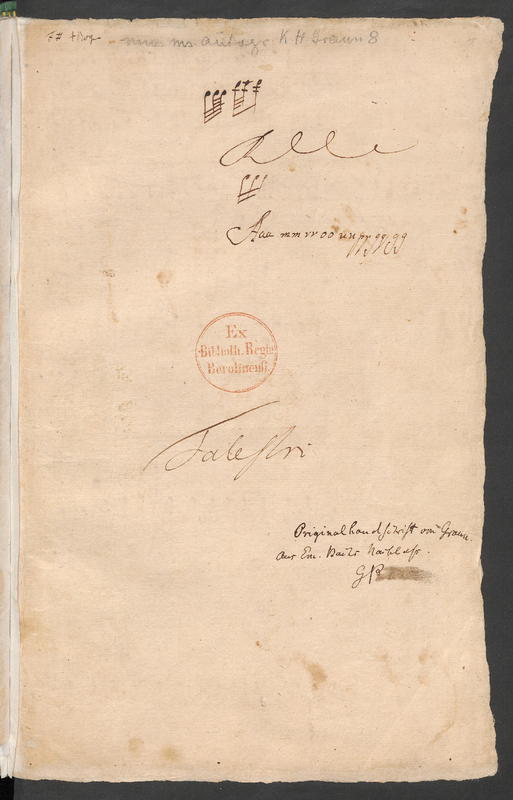 mus. ms. autogr. K H Graun 8
Alle
Aaa mm rr oo uu pp qq gg
Ex
Biblioth. Regia
Berolinensi.
Talestri
Originalhandschrift von Graun.
aus Em. Bachs Nachlasse.